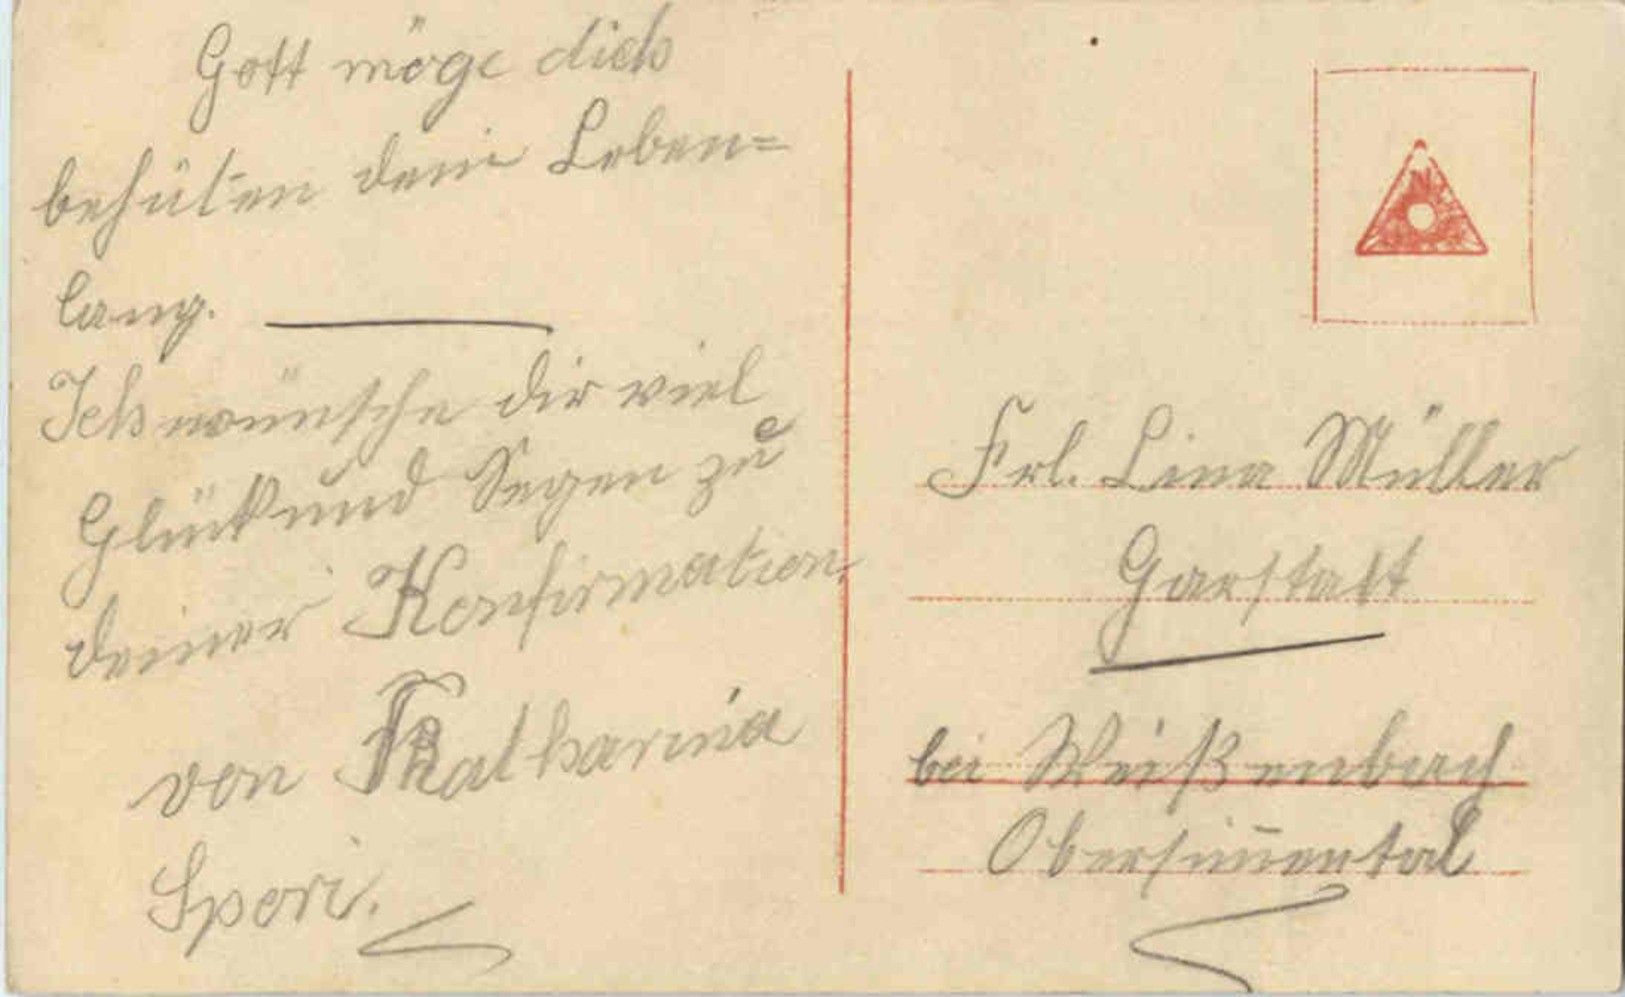 Gott möge dich
behüten dein Leben=
lang.
Ich wünsche dir viel
Glück und Segen zu
deiner Konfirmation
von Katharina
Speri.
Frl. Lina Müller
Garstatt
bei Weißenbach
Obersim̄ental